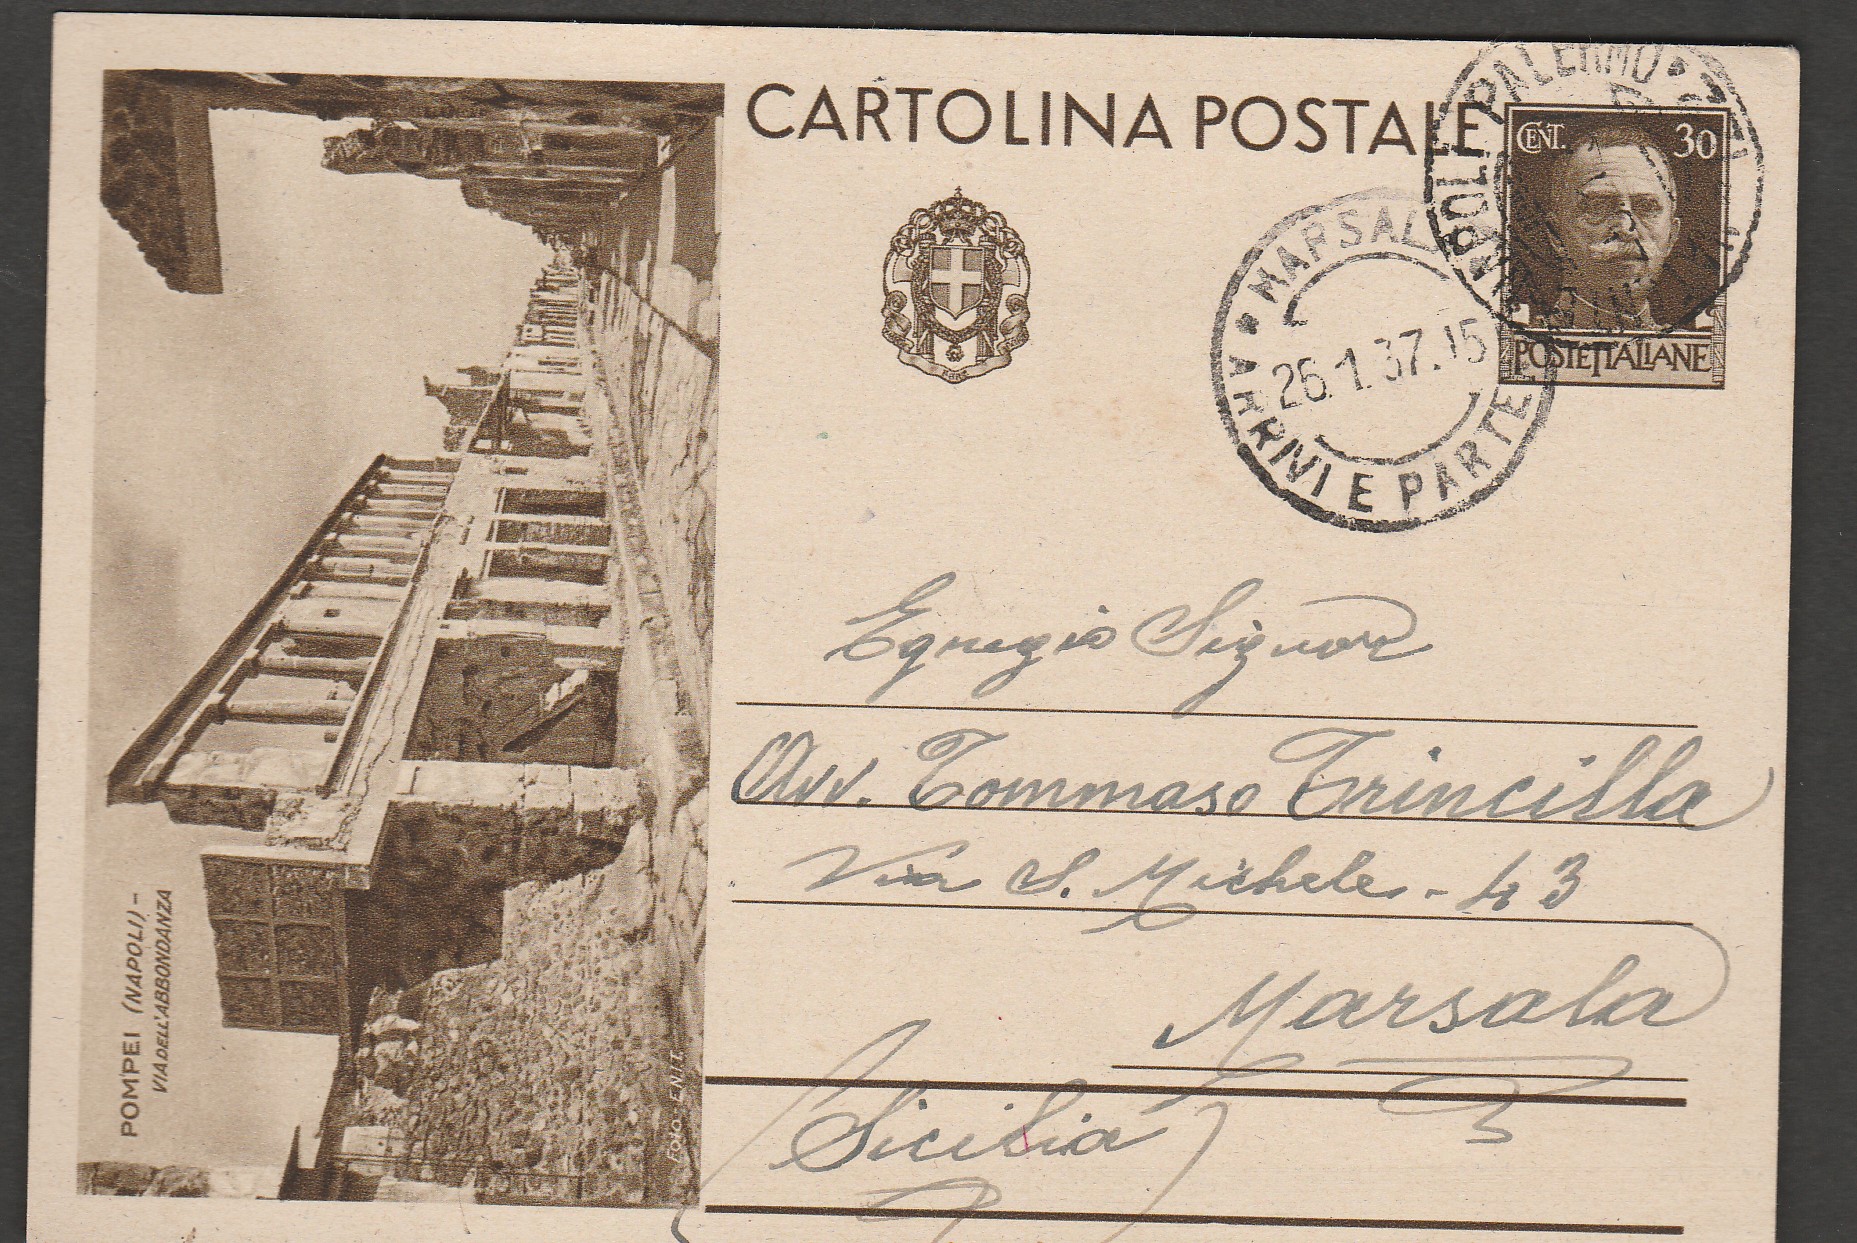 CARTOLINA POSTALE
CENT. 30
POSTE ITALIANE
NAPOLI PALERMO
MARSALA
26.1.37.15
ARRIVI E PARTENZE
Egregio Signor
Avv. Tommaso Trincilla
Via S. Michele - 43
Marsala
Sicilia
POMPEI (NAPOLI) -
VIA DELL'ABBONDANZA
Foto E.N.I.T.